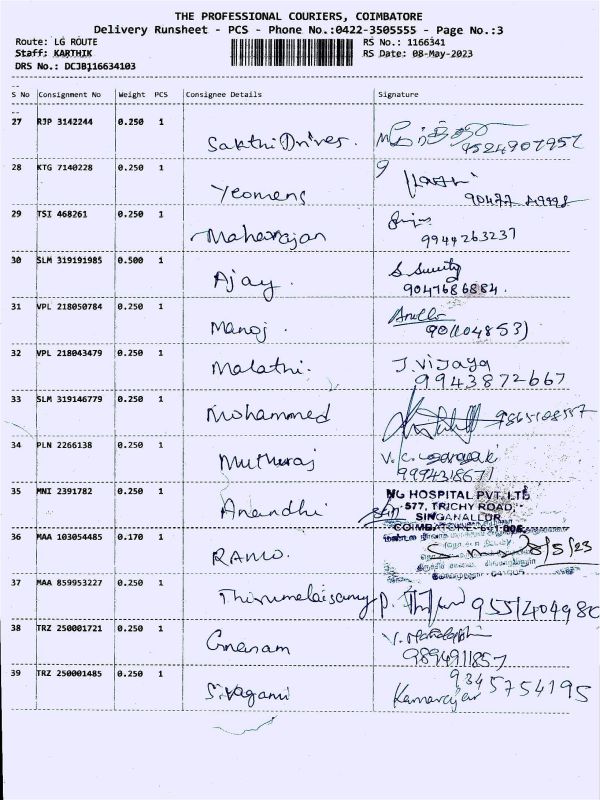 THE PROFESSIONAL COURIERS, COIMBATORE
Delivery Runsheet - PCS - Phone No.:0422-3505555 - Page No.:3
Route: LG ROUTE RS No.: 1166341
Staff: KARTHIK RS Date: 08-May-2023
DRS No.: DCJB116634103
S No Consignment No Weight PCS Consignee Details Signature
27 RJP 3142244 0.250 1
Sakthi Driver. 9524907957
28 KTG 7140228 0.250 1
Yeomens 90477
29 TSI 468261 0.250 1
Maharajan 9944263237
30 SLM 319191985 0.500 1
Ajay. 9047686884.
31 VPL 218050784 0.250 1
Manoj.
32 VPL 218043479 0.250 1 J. Vijaya
Malathi. 9943872667
33 SLM 319146779 0.250 1
Mohammed 9865108557
34 PLN 2266138 0.250 1 V. C.
Muthuraj 9994318671
35 MNI 2391782 0.250 1 NG HOSPITAL PVT. LTD
577, TRICHY ROAD,
Anandhi SINGANALLUR
COIMBATORE-641 005.
36 MAA 103054485 0.170 1
RAMO. 8/5/23
37 MAA 859953227 0.250 1
Thirumalaisamy P. 9551404980
38 TRZ 250001721 0.250 1 V.
Gnanam 9894911857
39 TRZ 250001485 0.250 1 9345754195
Sivagami Kamarajar